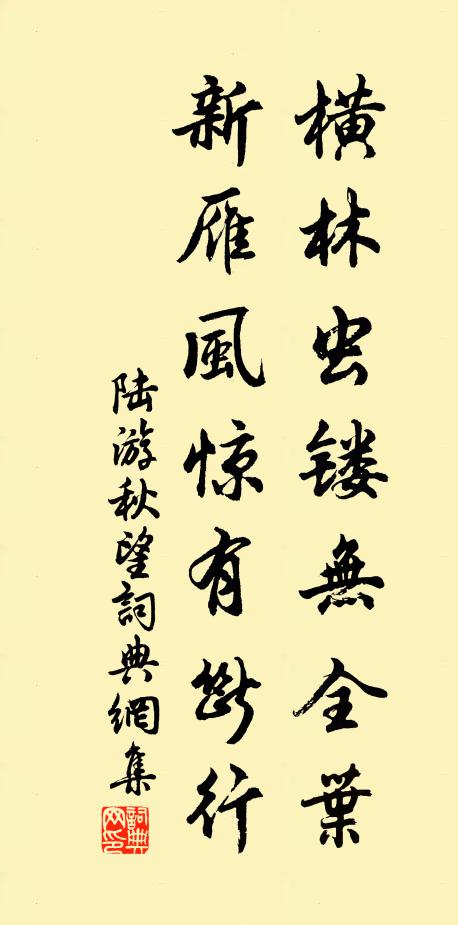 横林虫镂無全葉
新雁風惊有断行
陆游秋望詞典網集
詞典网印